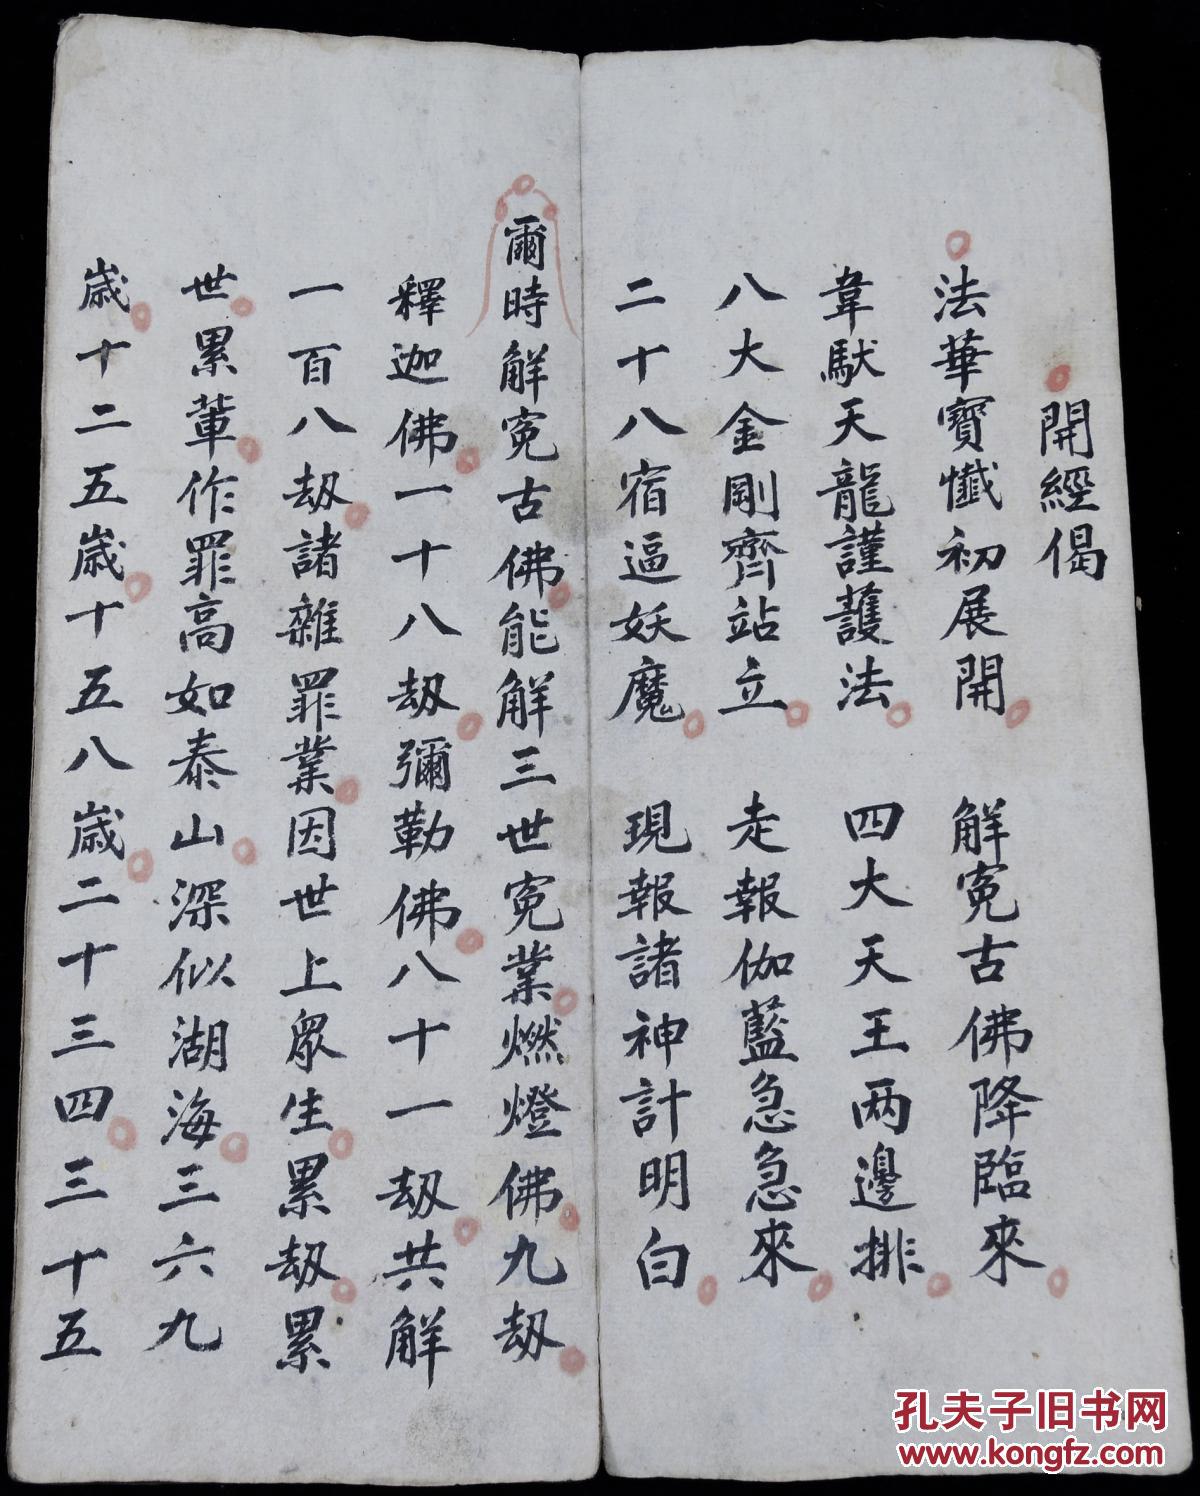 開經偈
法華寶懺初展開　解寃古佛降臨來
韋馱天龍謹護法　四大天王两邊排
八大金剛齊站立　走報伽藍急急來
二十八宿逼妖魔　現報諸神計明白
爾時解寃古佛能解三世寃業燃燈佛九刼
釋迦佛一十八刼彌勒佛八十一刼共解
一百八刼諸雜罪業因世上眾生累刼累
世累輩作罪高如泰山深似湖海三六九
歲十二五歲十五八歲二十三四三十五
孔夫子旧书网
www.kongfz.com